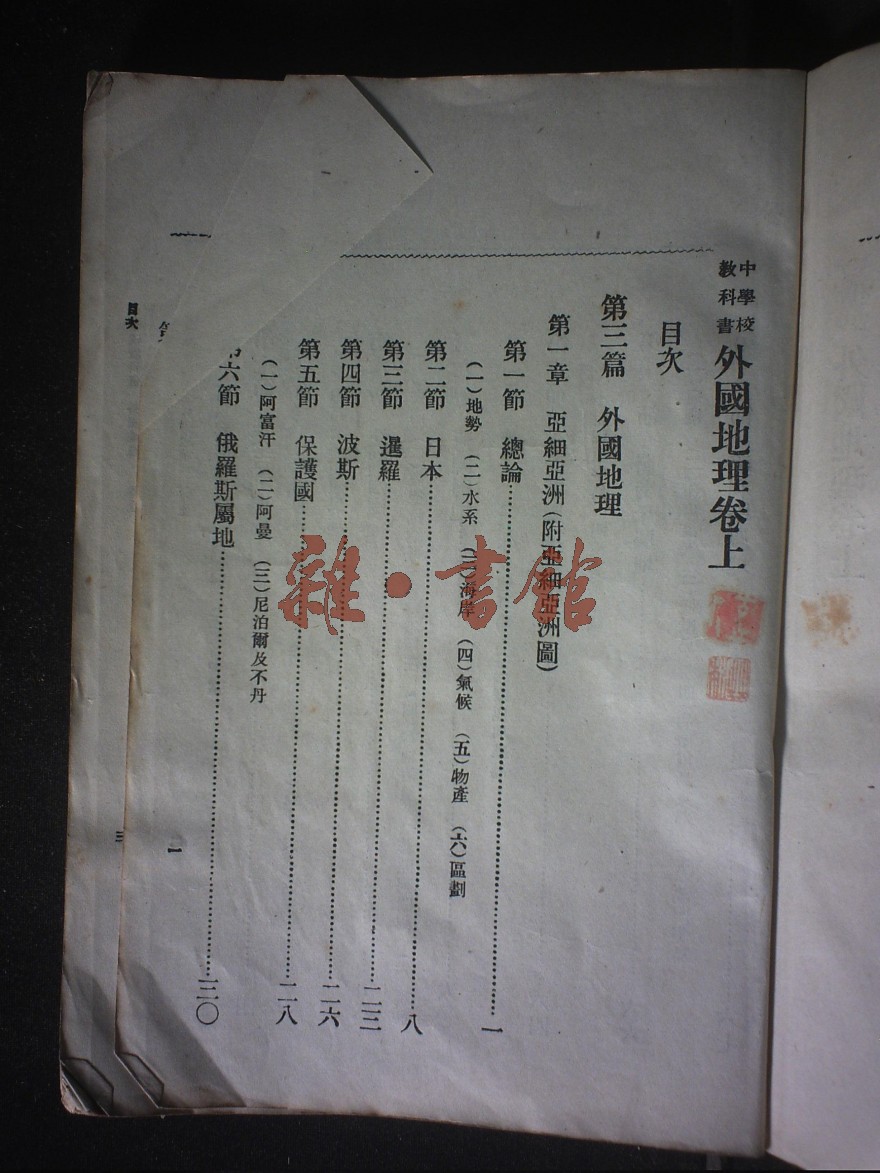 中學校
教科書
外國地理卷上
目次
第三篇 外國地理
第一章 亞細亞洲(附亞細亞洲圖)
第一節 總論……一
(一)地勢 (二)水系 (三)海岸 (四)氣候 (五)物產 (六)區劃
第二節 日本……八
第三節 暹羅……二三
第四節 波斯……二六
第五節 保護國……二八
(一)阿富汗 (二)阿曼 (三)尼泊爾及不丹
第六節 俄羅斯屬地……三〇
目次
一
三
雜·書館